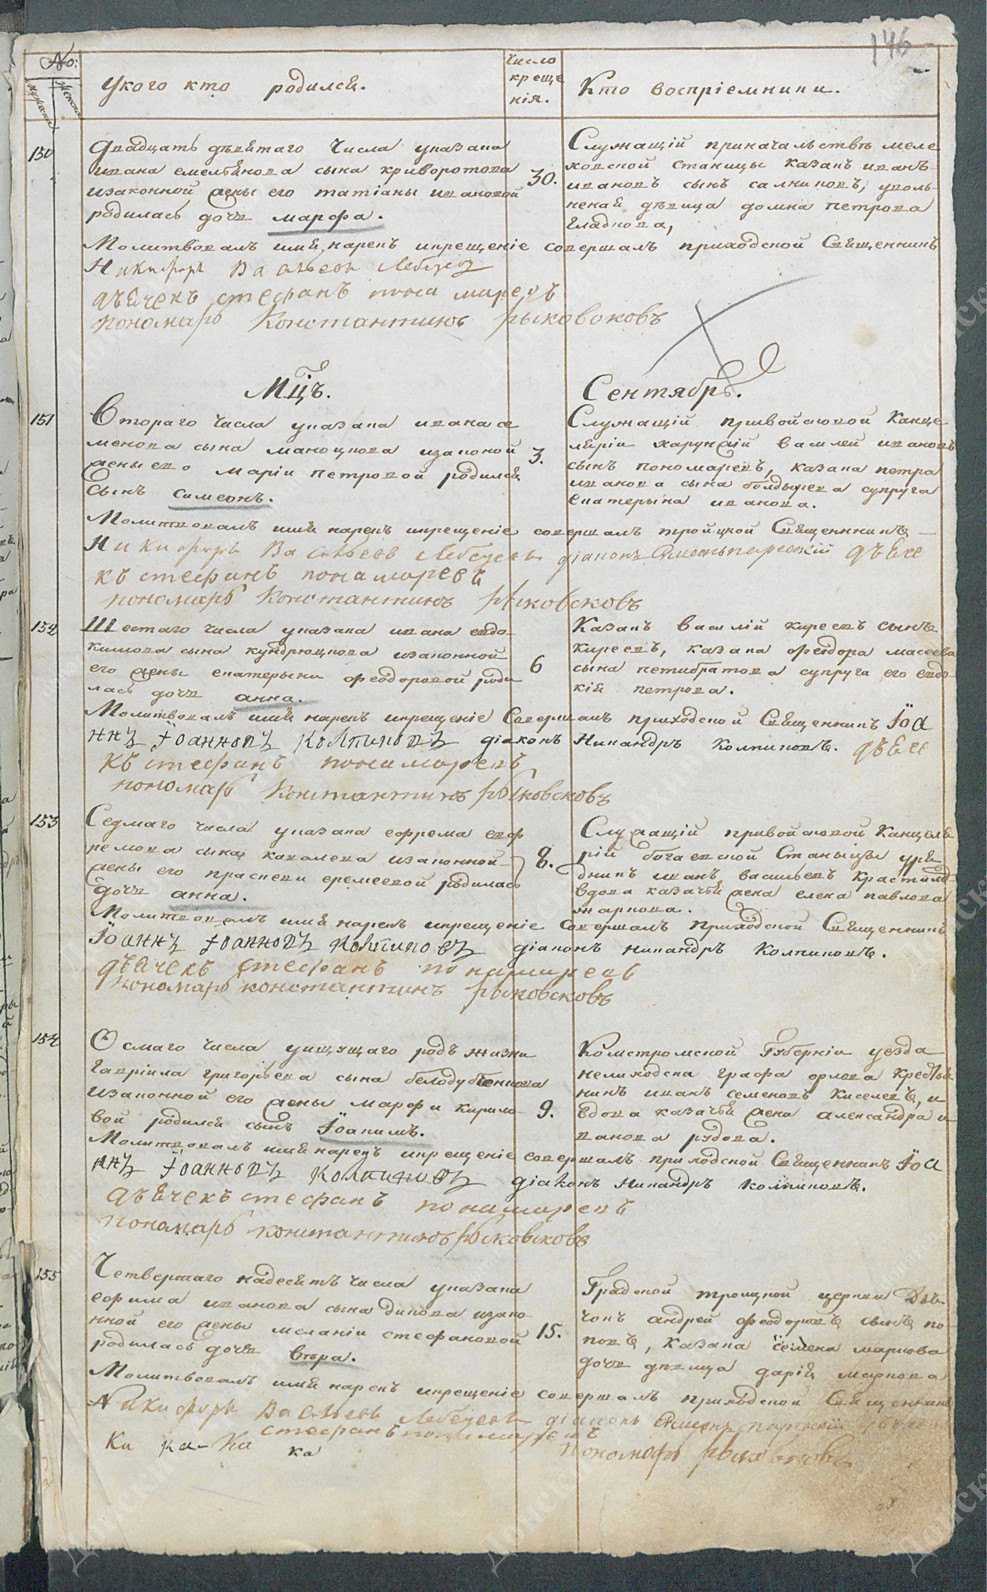 146
No:
У кого кто родился.
Число
креще
нія.
Кто воспріемники.
150
Двадцать девятаго Числа указака
ивана емельянова сына криворотова
изаконной жены его татіаны ивановой
родилась дочь марфа.
30.
Служащій приначальстве меле
ховской станицы казакъ иванъ
ивановъ сынъ
девица домна петрова
Молитвовалъ имя нарекъ икрещеніе совершалъ приходской Священникъ
Никифоръ Васильевъ
дьячекъ стефанъ понамаревъ
пономарь Константинъ рыковсковъ
Мцъ.
Сентябрь.
151
Втораго числа указака ивана се
менова сына изаконой
жены его маріи петровой родился
сынъ симеонъ.
3.
Служащій привойсковой Канце
ляріи харунжій василей ивановъ
сынъ пономаревъ, казака петра
иванова сына болдырева супруга
екатерына иванова.
Молитвовалъ имя нарекъ икрещеніе совершалъ троицкой Священникъ
Никифоръ Васильевъ Лебедевъ діаконъ дьяче
къ стефанъ понамаревъ
пономарь Константинъ рыковсковъ
152
Шестаго числа указака ивана евдо
кимова сына кундрюцкова изаконной
его жены екатерыны феодоровой роди
лась дочь анна.
6
Казакъ василій киреевъ сынъ
киреевъ, казака феодора
сына супруга его евдо
кія петрова.
Молитвовалъ имя нарекъ икрещеніе Совершалъ приходской Священникъ Їоа
ннъ Їоанновъ Колпиковъ діаконъ Никандръ Колпиковъ. дьяче
къ стефанъ понамаревъ
пономарь Константинъ рыковсковъ
153
Седмаго числа указака ефрема ефр
ремова сына ковалева изаконной
жены его праскеви еремеевой родилась
дочь анна.
8.
Служащій привойсковой Канцеля
рій богаевской Станыцы уря
дникъ иванъ васильевъ
вдова казачья жена елена павлова
жаркова.
Молитвовалъ имя нарекъ икрещеніе совершалъ приходской Священникъ
Їоаннъ Їоанновъ Колпиковъ діаконъ никандръ Колпиковъ.
дьячекъ стефанъ понамаревъ
пономарь константинъ рыковсковъ
154
Осмаго числа уищущаго родъ жизни
гавріила григорьева сына
изаконной его жены марфи кирило
вой родился сынъ Їоакимъ.
9.
Комстромской Губерніи уезда
графа орлова Крестья
нинъ иванъ семеновъ Киселевъ, и
вдова казачья жена александра и
ванова рудова.
Молитвовалъ имя нарекъ икрещеніе совершалъ приходской Священникъ Їоа
ннъ Їоанновъ Колпиковъ діаконъ Никандръ Колпиковъ.
дьячекъ стефанъ понамаревъ
пономарь константинъ рыковсковъ
155
Четвертаго надесять числа указака
ефима иванова сына дикова изако
нной его жены меланіи стефановой
родилась дочь вера.
15.
Градской троицкой церкви Дья
чокъ андрей феодоровъ сынъ по
повъ, казака семена маркова
дочь девица дарія маркова
Молитвовалъ имя нарекъ икрещеніе совершалъ приходской Священникъ
Никифоръ Васильевъ Лебедевъ діаконъ
стефанъ понамаревъ
Ка ка-Ка ка
пономарь рыковсковъ